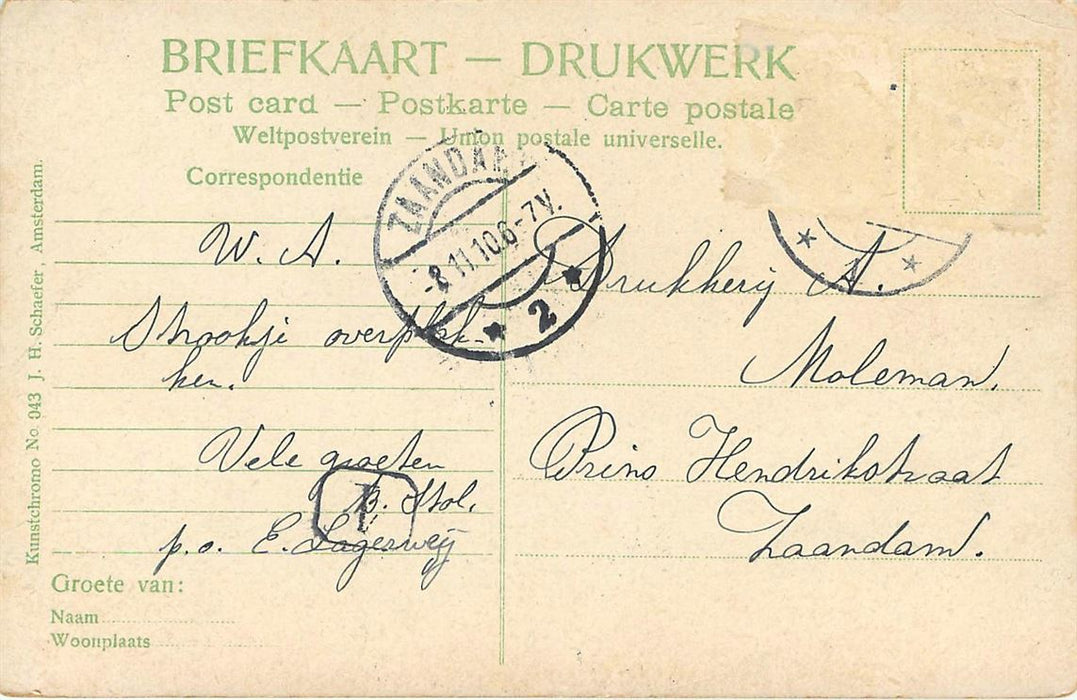 BRIEFKAART — DRUKWERK
Post card — Postkarte — Carte postale
Weltpostverein — Union postale universelle.
Correspondentie
ZAANDAM
-8.11.10.6-7V.
2
W. A.
Strookje overplak-
ken.
Vele groeten
B. Stol,
p.o. E. Lagerweij
1
Groete van:
Naam
Woonplaats
Kunstchromo No 943 J. H. Schaefer, Amsterdam.
Drukkerij A.
Moleman.
Prins Hendrikstraat
Zaandam.